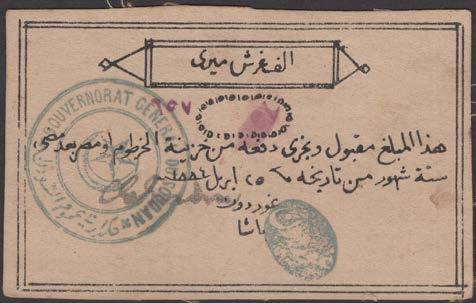 الف غرش ميرى
٩٥٧
هذا المبلغ مقبول ويجرى دفعه من خزينة الخرطوم او مصر بعد مضى
ستة شهور من تاريخه ٢٥ ابريل ١٨٨٤
غوردون
باشا
GOUVERNORAT GENERAL DU SOUDAN